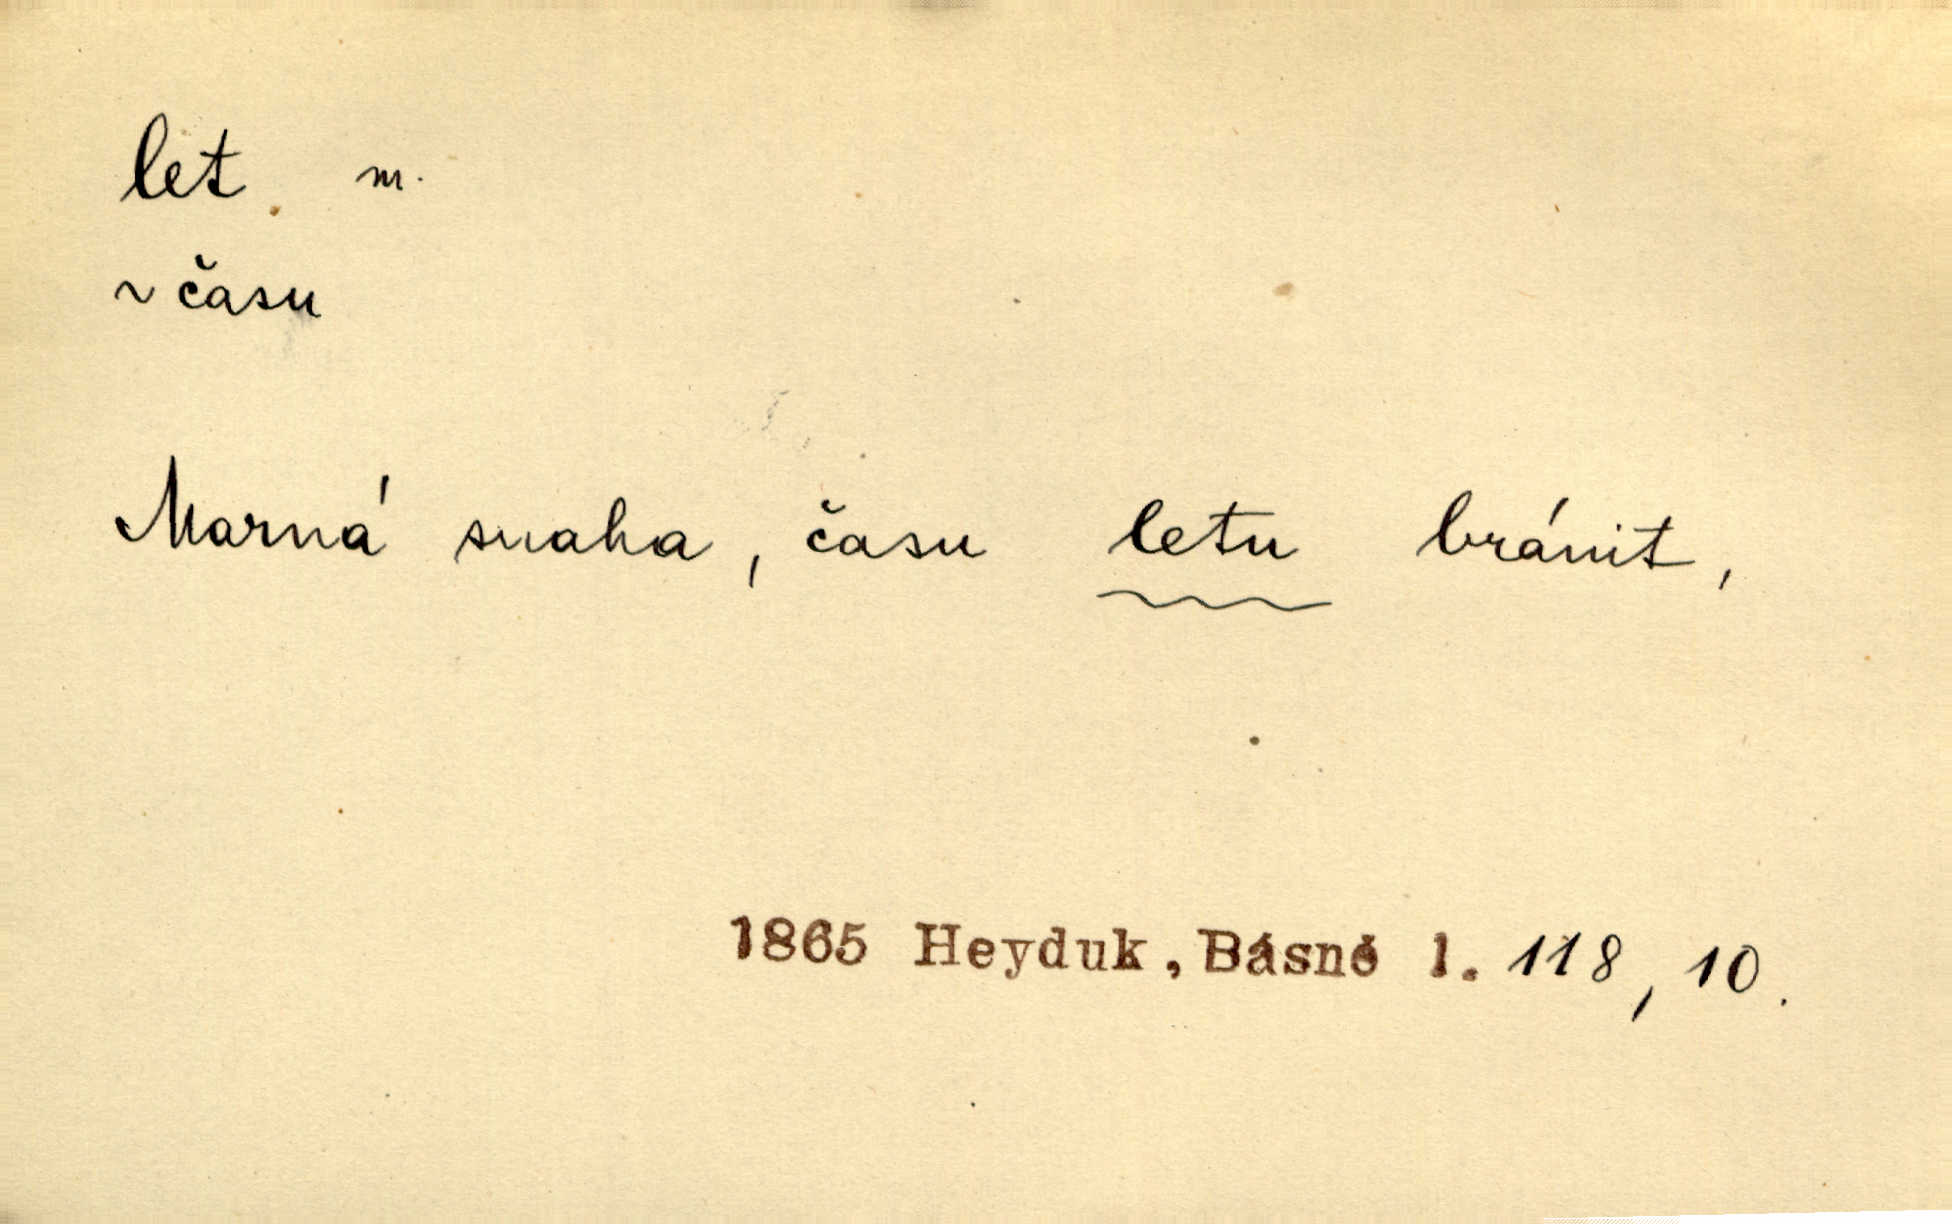 let m.
~ času
Marná snaha, času letu bránit,
1865 Heyduk, Básně 1. 118, 10.